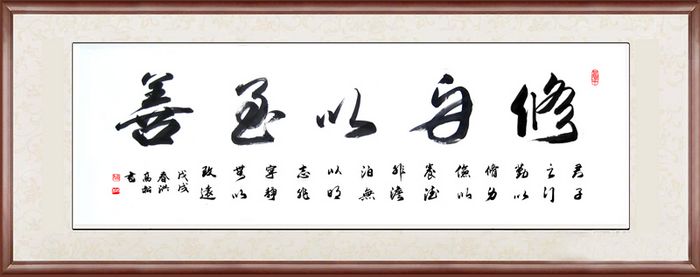 修身以至善
君子
之行
勤以
修身
儉以
養德
非澹
泊無
以明
志非
寧靜
無以
致遠
戊戌
春洪
高松
書